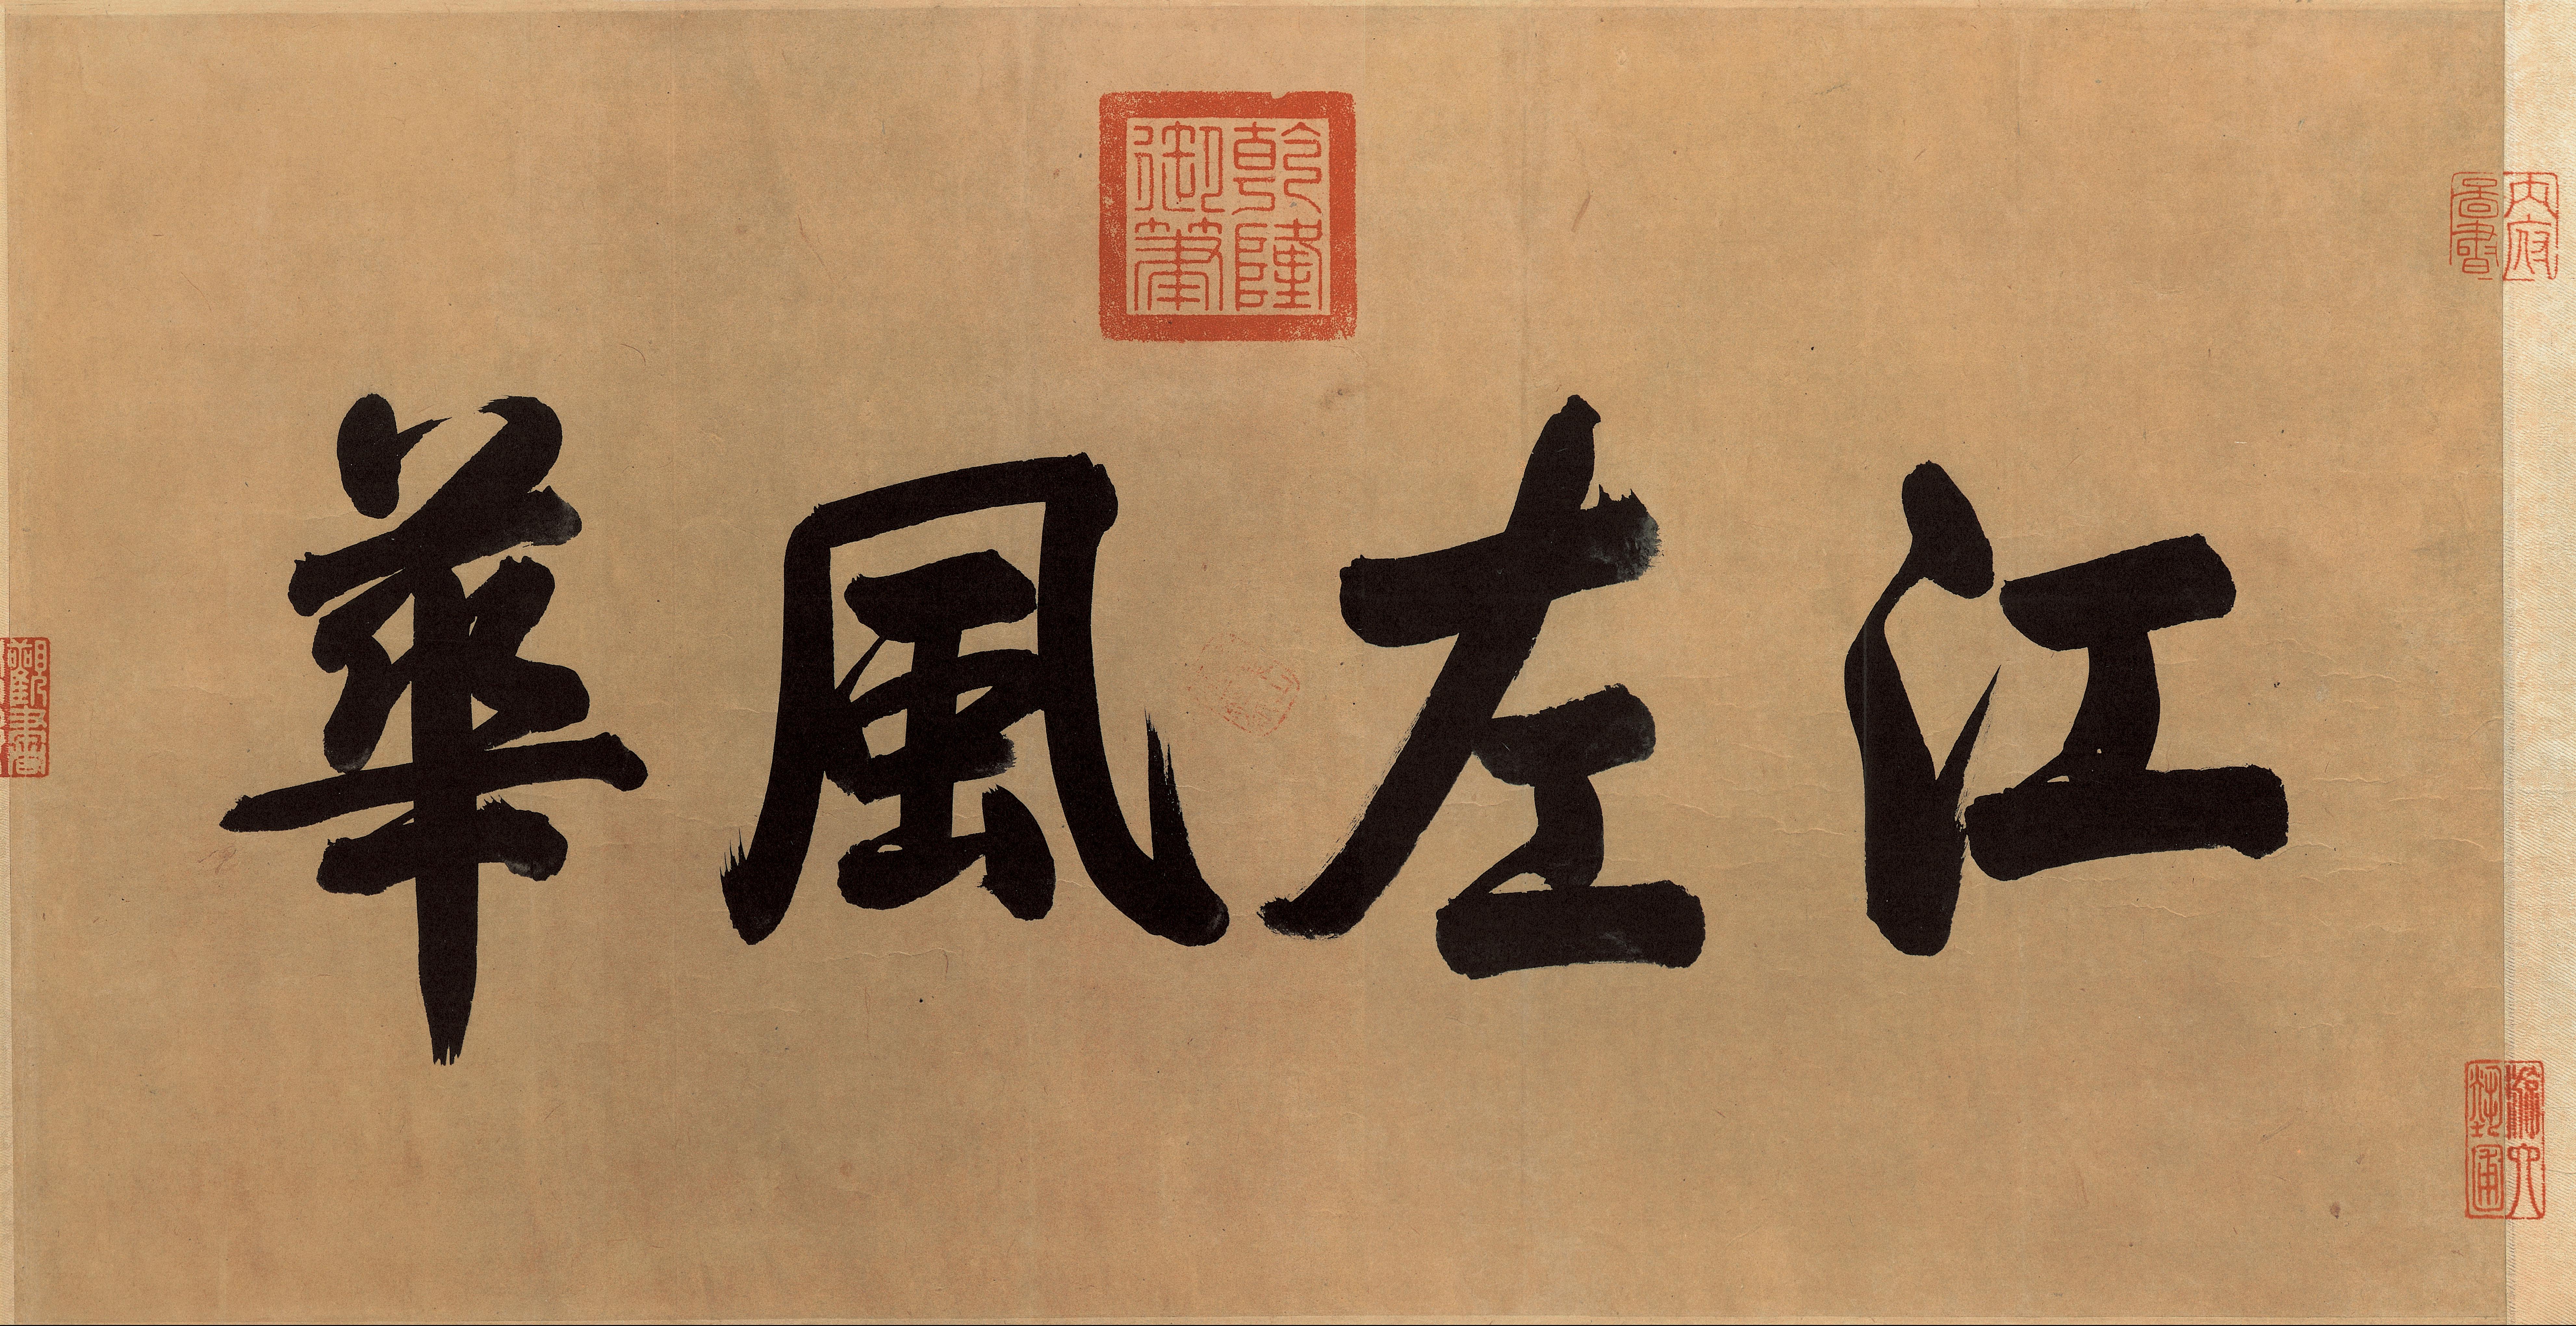 江左風華
乾隆
御筆
內府
圖書